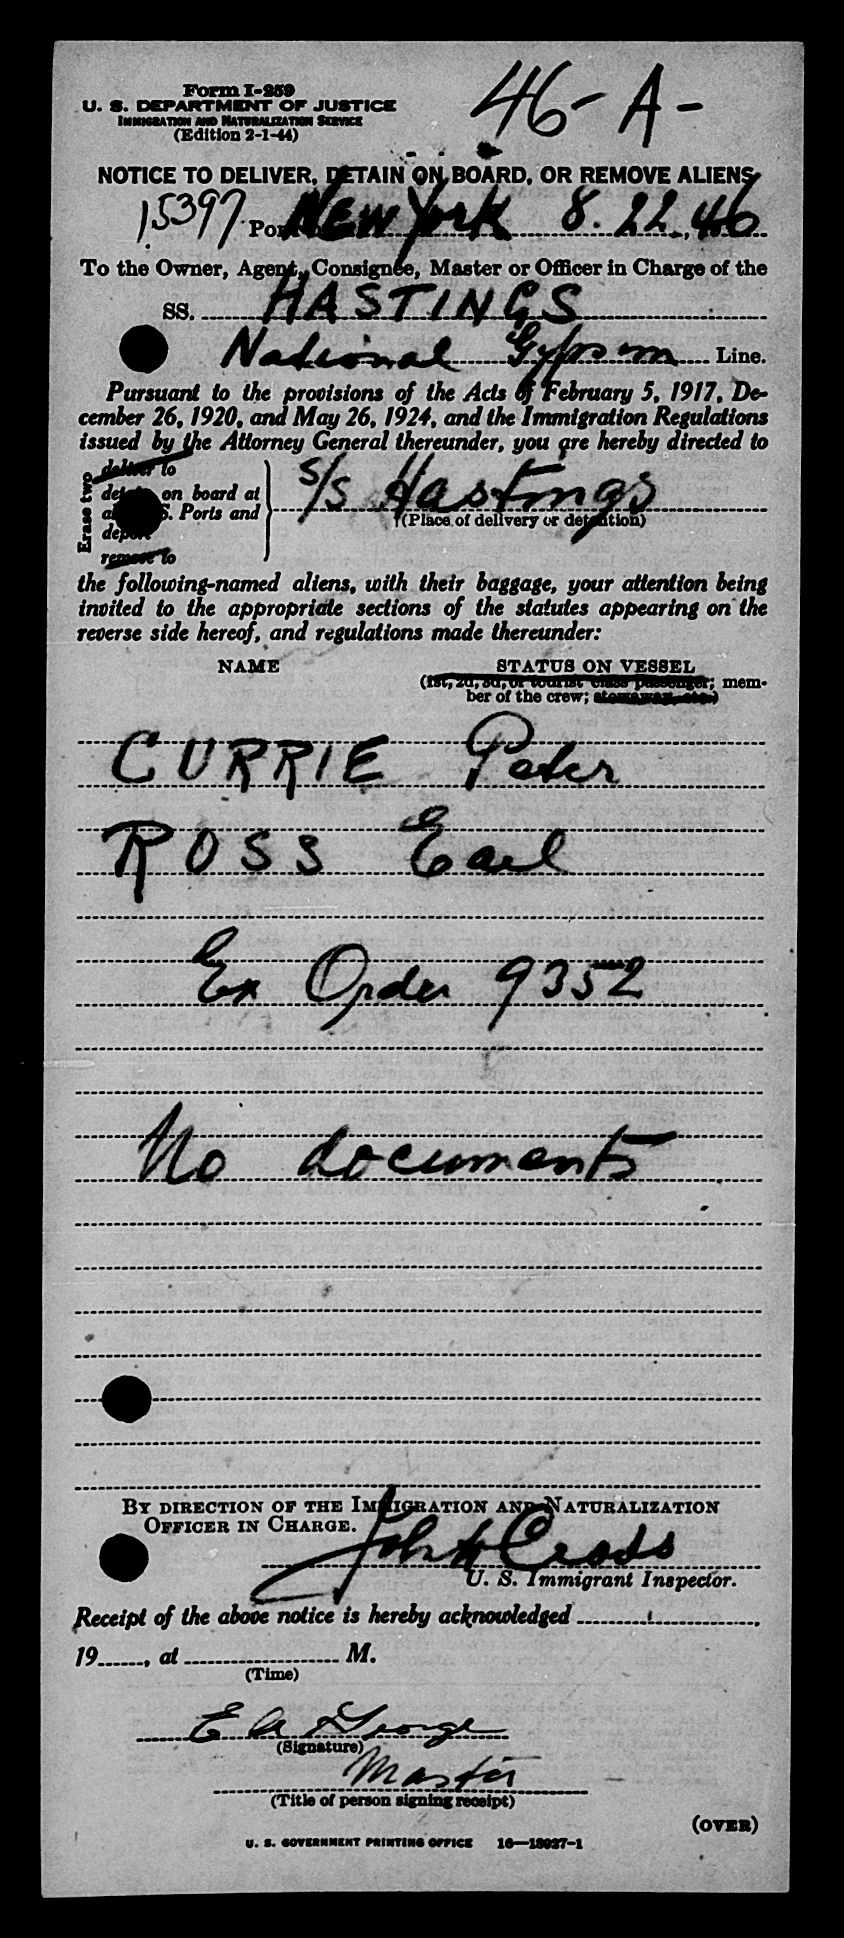 Form I-259
U. S. DEPARTMENT OF JUSTICE
IMMIGRATION AND NATURALIZATION SERVICE
(Edition 2-1-44)
46-A-
NOTICE TO DELIVER, DETAIN ON BOARD, OR REMOVE ALIENS
15397 Port of New York 8.22.,46
To the Owner, Agent, Consignee, Master or Officer in Charge of the
SS. HASTINGS
National Gypsum Line.
Pursuant to the provisions of the Acts of February 5, 1917, De-
cember 26, 1920, and May 26, 1924, and the Immigration Regulations
issued by the Attorney General thereunder, you are hereby directed to
Erase two
deliver to
detain on board at
all U.S. Ports and
deport
remove to
S/S Hastings
(Place of delivery or detention)
the following-named aliens, with their baggage, your attention being
invited to the appropriate sections of the statutes appearing on the
reverse side hereof, and regulations made thereunder:
NAME STATUS ON VESSEL
(1st, 2d, 3d, or tourist class passenger; mem-
ber of the crew; stowaway, etc.)
CURRIE Peter
ROSS Earl
Ex Order 9352
No documents
BY DIRECTION OF THE IMMIGRATION AND NATURALIZATION
OFFICER IN CHARGE.
John
U. S. Immigrant Inspector.
Receipt of the above notice is hereby acknowledged
19 , at M.
(Time)
E A George
(Signature)
Master
(Title of person signing receipt)
(OVER)
U. S. GOVERNMENT PRINTING OFFICE 16—18927-1